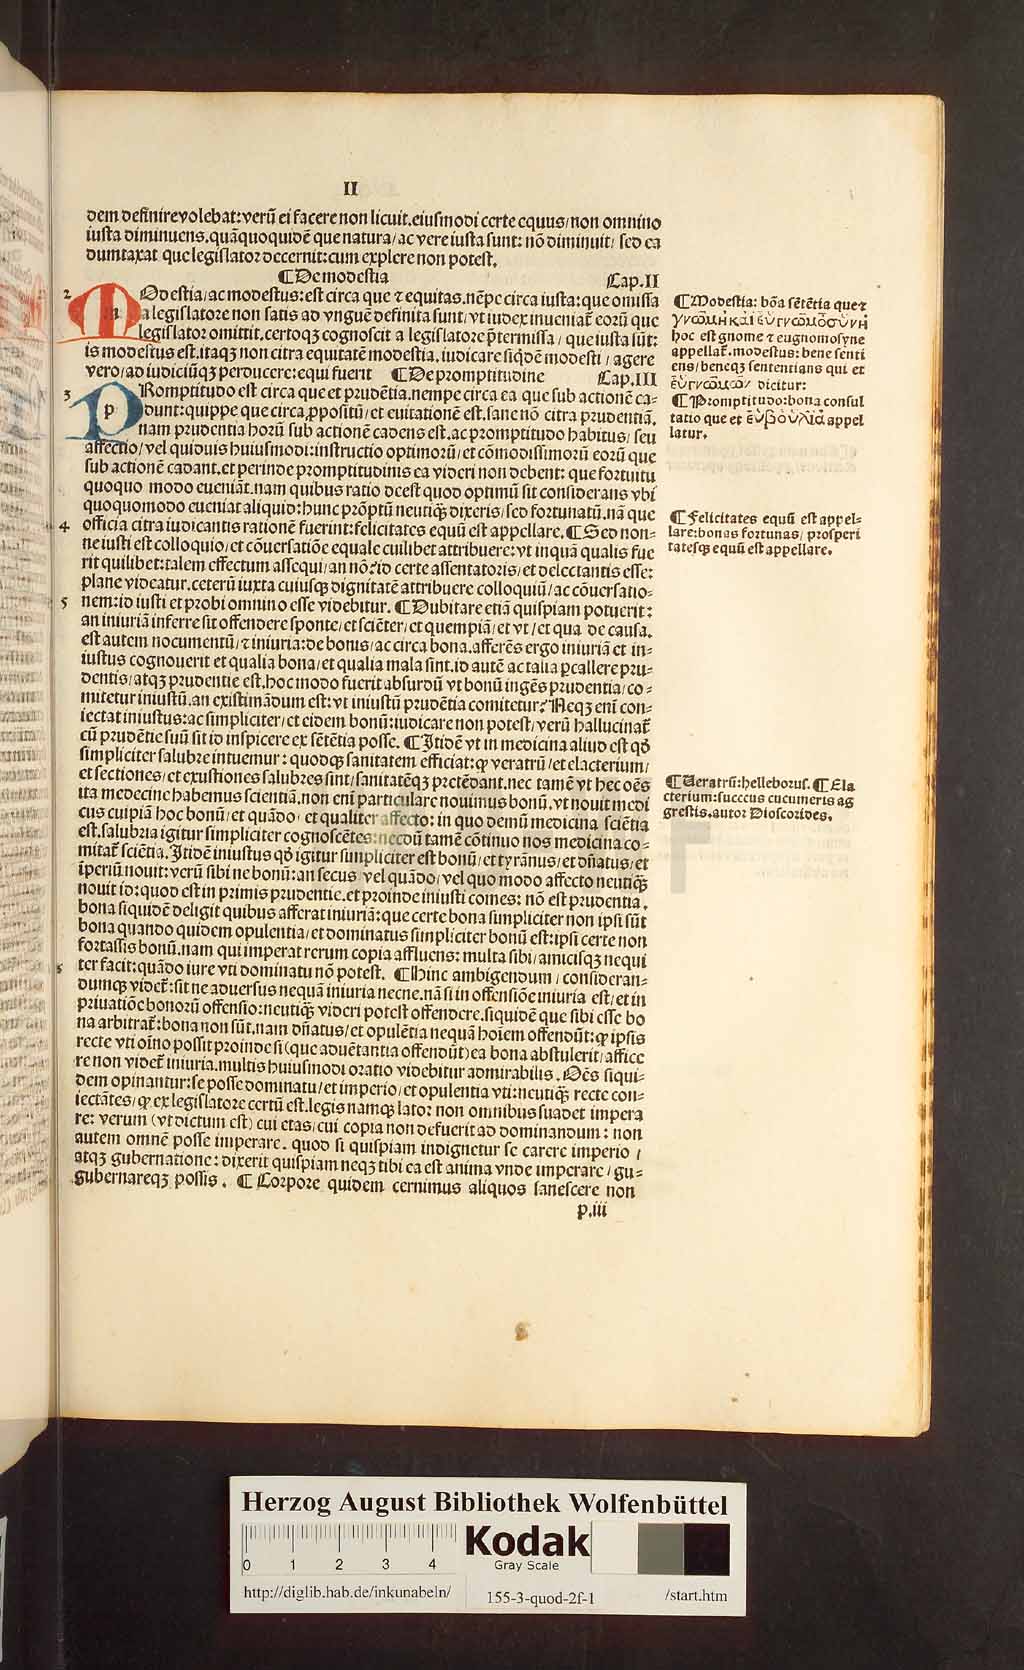 II
dem definire volebat: verū ei facere non licuit. eiusmodi certe equus/ non omnino
iusta diminuens. quāquoquidē que natura/ ac vere iusta sunt: nō diminuit/ sed ea
dumtaxat que legislator decernit: cum explere non potest.
¶ De modestia Cap. II
2 MOdestia/ ac modestus: est circa que ⁊ equitas. nēpe circa iusta: que omissa
a legislatore non satis ad vnguē definita sunt/ vt iudex inueniat̄ eorū que
legislator omittit. certoqꝫ cognoscit a legislatore p̄termissa/ que iusta sūt:
is modestus est. itaqꝫ non citra equitatē modestia. iudicare siqdē modesti/ agere
vero/ ad iudiciūqꝫ perducere: equi fuerit ¶ De promptitudine Cap. III
3 PRomptitudo est circa que et prudētia. nempe circa ea que sub actionē ca-
dunt: quippe que circa ꝓpositū/ et euitationē est. sane nō citra prudentiā.
nam prudentia horū sub actionē cadens est. ac promptitudo habitus/ seu
affectio/ vel quiduis huiusmodi: instructio optimorū/ et cōmodissimorū eorū que
sub actionē cadant. et perinde promptitudinis ea videri non debent: que fortuitu
quoquo modo eueniāt. nam quibus ratio deest quod optimū sit considerans vbi
quoquomodo eueniat aliquid: hunc prōptū neutiqꝫ dixeris/ sed fortunatū. nā que
4 officia citra iudicantis rationē fuerint: felicitates equū est appellare. ¶ Sed non-
ne iusti est colloquio/ et cōuersatiōe equale cuilibet attribuere: vt inquā qualis fue
rit quilibet: talem effectum assequi/ an nō? id certe assentatoris/ et delectantis esse:
plane videatur. ceterū iuxta cuiusqꝫ dignitatē attribuere colloquiū/ ac cōuersatio-
5 nem: id iusti et probi omnino esse videbitur. ¶ Dubitare etiā quispiam potuerit:
an iniuriā inferre sit offendere sponte/ et sciēter/ et quempiā/ et vt/ et qua de causa.
est autem nocumentū/ ⁊ iniuria: de bonis/ ac circa bona. afferēs ergo iniuriā et in-
iustus cognouerit et qualia bona/ et qualia mala sint. id autē ac talia ꝑcallere pru-
dentis/ atqꝫ prudentie est. hoc modo fuerit absurdū vt bonū ingēs prudentia/ co-
mitetur iniustū. an existimādum est: vt iniustū prudētia comitetur? Neqꝫ enī con-
iectat iniustus: ac simpliciter/ et eidem bonū: iudicare non potest/ verū hallucinat̄
cū prudētie suū sit id inspicere ex sētētia posse. ¶ Itidē vt in medicina aliud est qd̄
simpliciter salubre intuemur: quodqꝫ sanitatem efficiat: ꝙ veratrū/ et elacterium/
et sectiones/ et exustiones salubres sint/ sanitatēqꝫ pretēdant. nec tamē vt hec oēs
ita medecine habemus scientiā. non enī particulare nouimus bonū. vt nouit medi
cus cuipiā hoc bonū/ et quādo/ et qualiter affecto: in quo demū medicina sciētia
est. salubria igitur simpliciter cognoscētes: necdū tamē cōtinuo nos medicina co-
mitat̄ sciētia. Itidē iniustus qd̄ igitur simpliciter est bonū/ et tyrānus/ et dn̄atus/ et
īperiū nouit: verū sibi ne bonū: an secus vel quādo/ vel quo modo affecto neutiqꝫ
nouit id: quod est in primis prudentie. et proinde iniusti comes: nō est prudentia.
bona siquidē deligit quibus afferat iniuriā: que certe bona simpliciter non ipsi sūt
bona quando quidem opulentia/ et dominatus simpliciter bonū est: ipsi certe non
fortassis bonū. nam qui imperat rerum copia affluens: multa sibi/ amicisqꝫ nequi
6 ter facit: quādo iure vti dominatu nō potest. ¶ Hinc ambigendum/ consideran-
dumqꝫ videt̄: sit ne aduersus nequā iniuria necne. nā si in offensiōe iniuria est/ et in
priuatiōe bonorū offensio: neutiqꝫ videri potest offendere. siquidē que sibi esse bo
na arbitrat̄: bona non sūt. nam dn̄atus/ et opulētia nequā hoīem offendūt: ꝙ ipsis
recte vti oīno possit proinde si (que aduētantia offendūt) ea bona abstulerit/ affice
re non videt̄ iniuria. multis huiusmodi oratio videbitur admirabilis. Oēs siqui-
dem opinantur: se posse dominatu/ et imperio/ et opulentia vti: neutiqꝫ recte con-
iectātes/ ꝙ ex legislatore certū est. legis namqꝫ lator non omnibus suadet impera
re: verum (vt dictum est) cui etas/ cui copia non defuerit ad dominandum: non
autem omnē posse imperare. quod si quispiam indignetur se carere imperio/
atqꝫ gubernatione: dixerit quispiam neqꝫ tibi ea est anima vnde imperare/ gu-
gubernareqꝫ possis. ¶ Corpore quidem cernimus aliquos sanescere non
p.iii
¶ Modestia: bōa sētētia que ⁊
γνώμη καὶ εὐγνωμοσύνη
hoc est gnome ⁊ eugnomosyne
appellat̄. modestus: bene senti
ens/ beneqꝫ sententians qui et
εὐγνώμων dicitur:
¶ Promptitudo: bona consul
tatio que et εὐβουλία appel
latur.
¶ Felicitates equū est appel-
lare: bonas fortunas/ prosperi
tatesqꝫ equū est appellare.
¶ Veratrū: helleborus. ¶ Ela
cterium: succus cucumeris ag
grestis. autor Dioscorides.
Herzog August Bibliothek Wolfenbüttel
0 1 2 3 4
Kodak
Gray Scale
http://diglib.hab.de/inkunabeln/
155-3-quod-2f-1
/start.htm